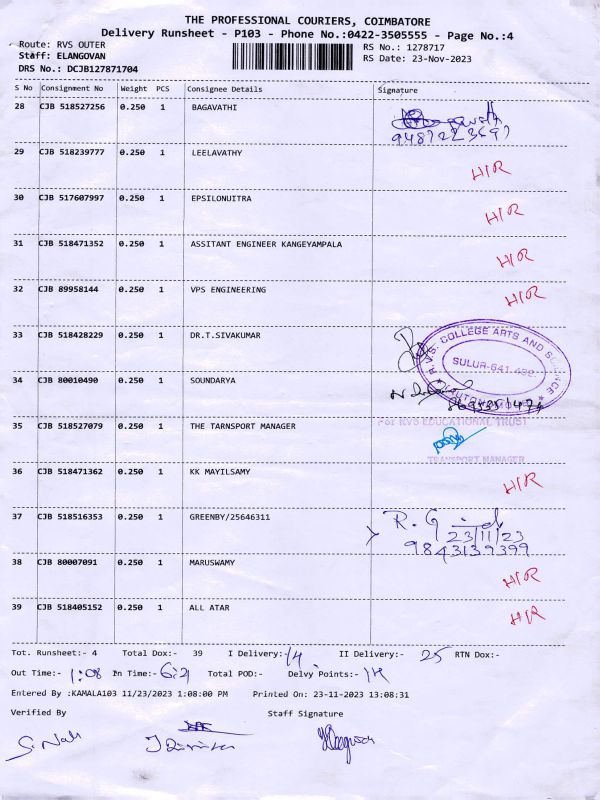 THE PROFESSIONAL COURIERS, COIMBATORE
Delivery Runsheet - P103 - Phone No.:0422-3505555 - Page No.:4
Route: RVS OUTER
RS No.: 1278717
Staff: ELANGOVAN
RS Date: 23-Nov-2023
DRS No.: DCJB127871704
S No Consignment No Weight PCS Consignee Details Signature
28 CJB 518527256 0.250 1 BAGAVATHI
9487223697
29 CJB 518239777 0.250 1 LEELAVATHY H/R
30 CJB 517607997 0.250 1 EPSILONUITRA H/R
31 CJB 518471352 0.250 1 ASSITANT ENGINEER KANGEYAMPALA H/R
32 CJB 89958144 0.250 1 VPS ENGINEERING H/R
33 CJB 518428229 0.250 1 DR.T.SIVAKUMAR
R.V.S. COLLEGE ARTS AND SCIENCE
SULUR-641 402
34 CJB 80010490 0.250 1 SOUNDARYA
35 CJB 518527079 0.250 1 THE TARNSPORT MANAGER
For RVS EDUCATIONAL TRUST
TRANSPORT MANAGER
36 CJB 518471362 0.250 1 KK MAYILSAMY H/R
37 CJB 518516353 0.250 1 GREENBY/25646311
23/11/23
9843139399
38 CJB 80007091 0.250 1 MARUSWAMY H/R
39 CJB 518405152 0.250 1 ALL ATAR H/R
Tot. Runsheet:- 4 Total Dox:- 39 I Delivery:- 14 II Delivery:- 25 RTN Dox:-
Out Time:- 1:08 In Time:- 6:21 Total POD:- Delvy Points:- 14
Entered By :KAMALA103 11/23/2023 1:08:00 PM Printed On: 23-11-2023 13:08:31
Verified By Staff Signature